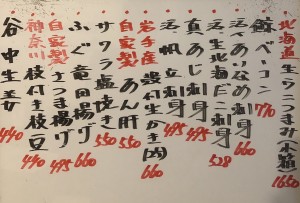 北海道生ウニつまみ(小箱) 1650
鯨ベーコン 770
活〆あいなめ刺身 660
活生北海だこ刺身 528
真あじ刺身 495
活帆立刺身 495
岩手産殻付生かき(2ヶ) 660
自家製あん肝 550
サクラ塩焼き 550
ふぐ竜田揚げ 660
自家製さつま揚げ 495
神奈川枝付き枝豆 440
谷中生姜 440